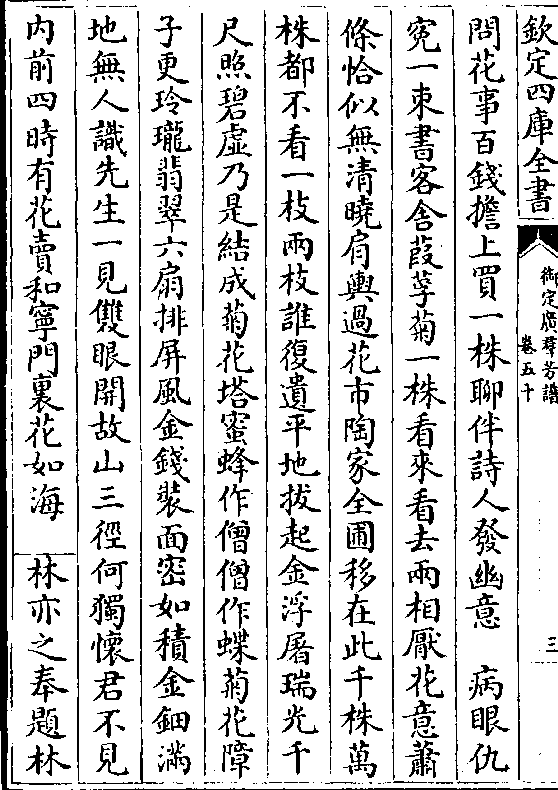 欽定四庫全書
御定廣群芳譜
卷五十
三
問花事百錢擔上買一株聊伴詩人發幽意　病眼仇
寃一束書客舍葭莩菊一株看來看去兩相厭花意蕭
條恰似無清曉肩輿過花市陶家全圃移在此千株萬
株都不看一枝兩枝誰復遺平地拔起金浮屠瑞光千
尺照碧虛乃是結成菊花塔蜜蜂作僧僧作蝶菊花障
子更玲瓏翡翠六扇排屏風金錢裝面密如積金鈿滿
地無人識先生一見雙眼開故山三徑何獨懷君不見
内前四時有花賣和寧門裏花如海　林亦之奉題林